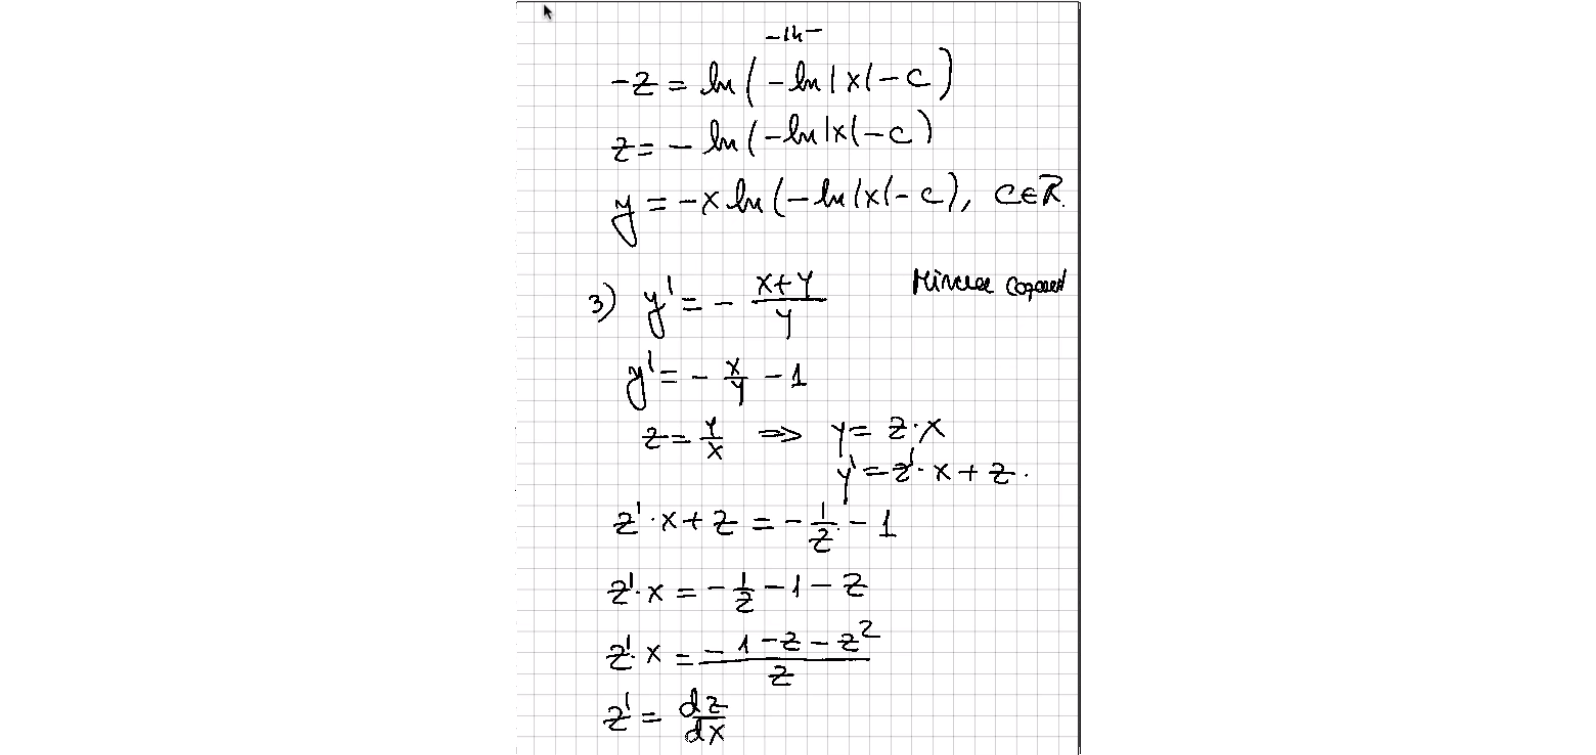 -14-
-z = ln(-ln|x|-c)
z = -ln(-ln|x|-c)
y = -x ln(-ln|x|-c), C∈R.
3) y' = - \frac{x+y}{y}
y' = - \frac{x}{y} - 1
z = \frac{y}{x} ⇒ y = z·x
y' = z'·x + z.
z'·x + z = - \frac{1}{z} - 1
z'·x = - \frac{1}{z} - 1 - z
z'·x = \frac{-1-z-z^2}{z}
z' = \frac{dz}{dx}